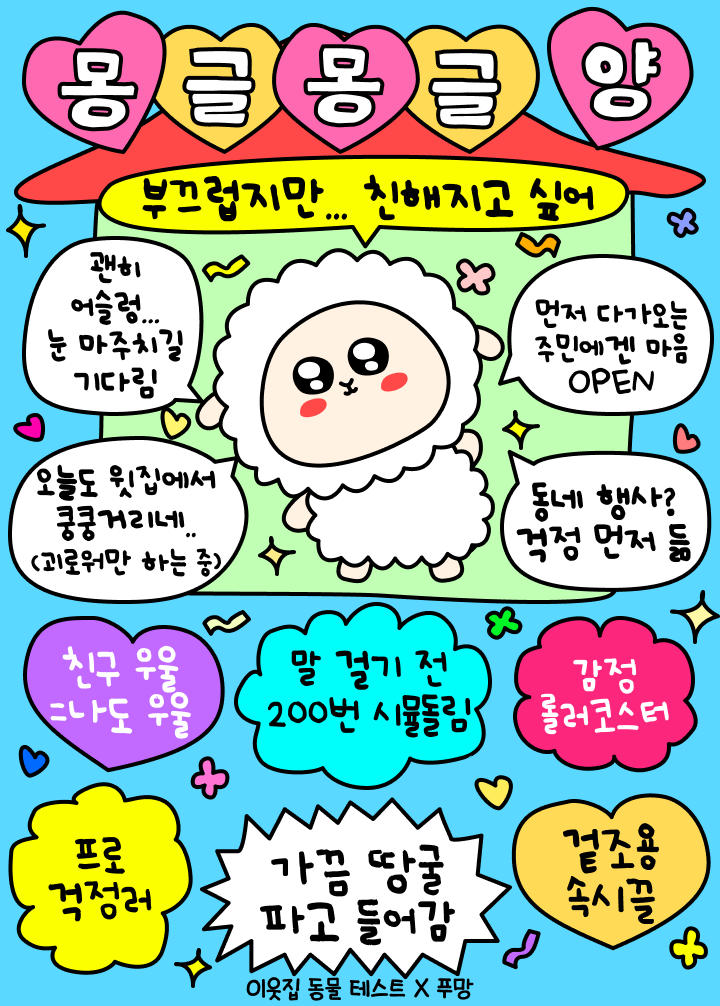 몽글몽글 양
부끄럽지만... 친해지고 싶어
괜히
어슬렁...
눈 마주치길
기다림
먼저 다가오는
주민에겐 마음
OPEN
오늘도 윗집에서
쿵쿵거리네..
(괴로워만 하는 중)
동네 행사?
걱정 먼저 듦
친구 우울
=나도 우울
말 걸기 전
200번 시뮬돌림
감정
롤러코스터
프로
걱정러
가끔 땅굴
파고 들어감
겉조용
속시끌
이웃집 동물 테스트 X 푸망